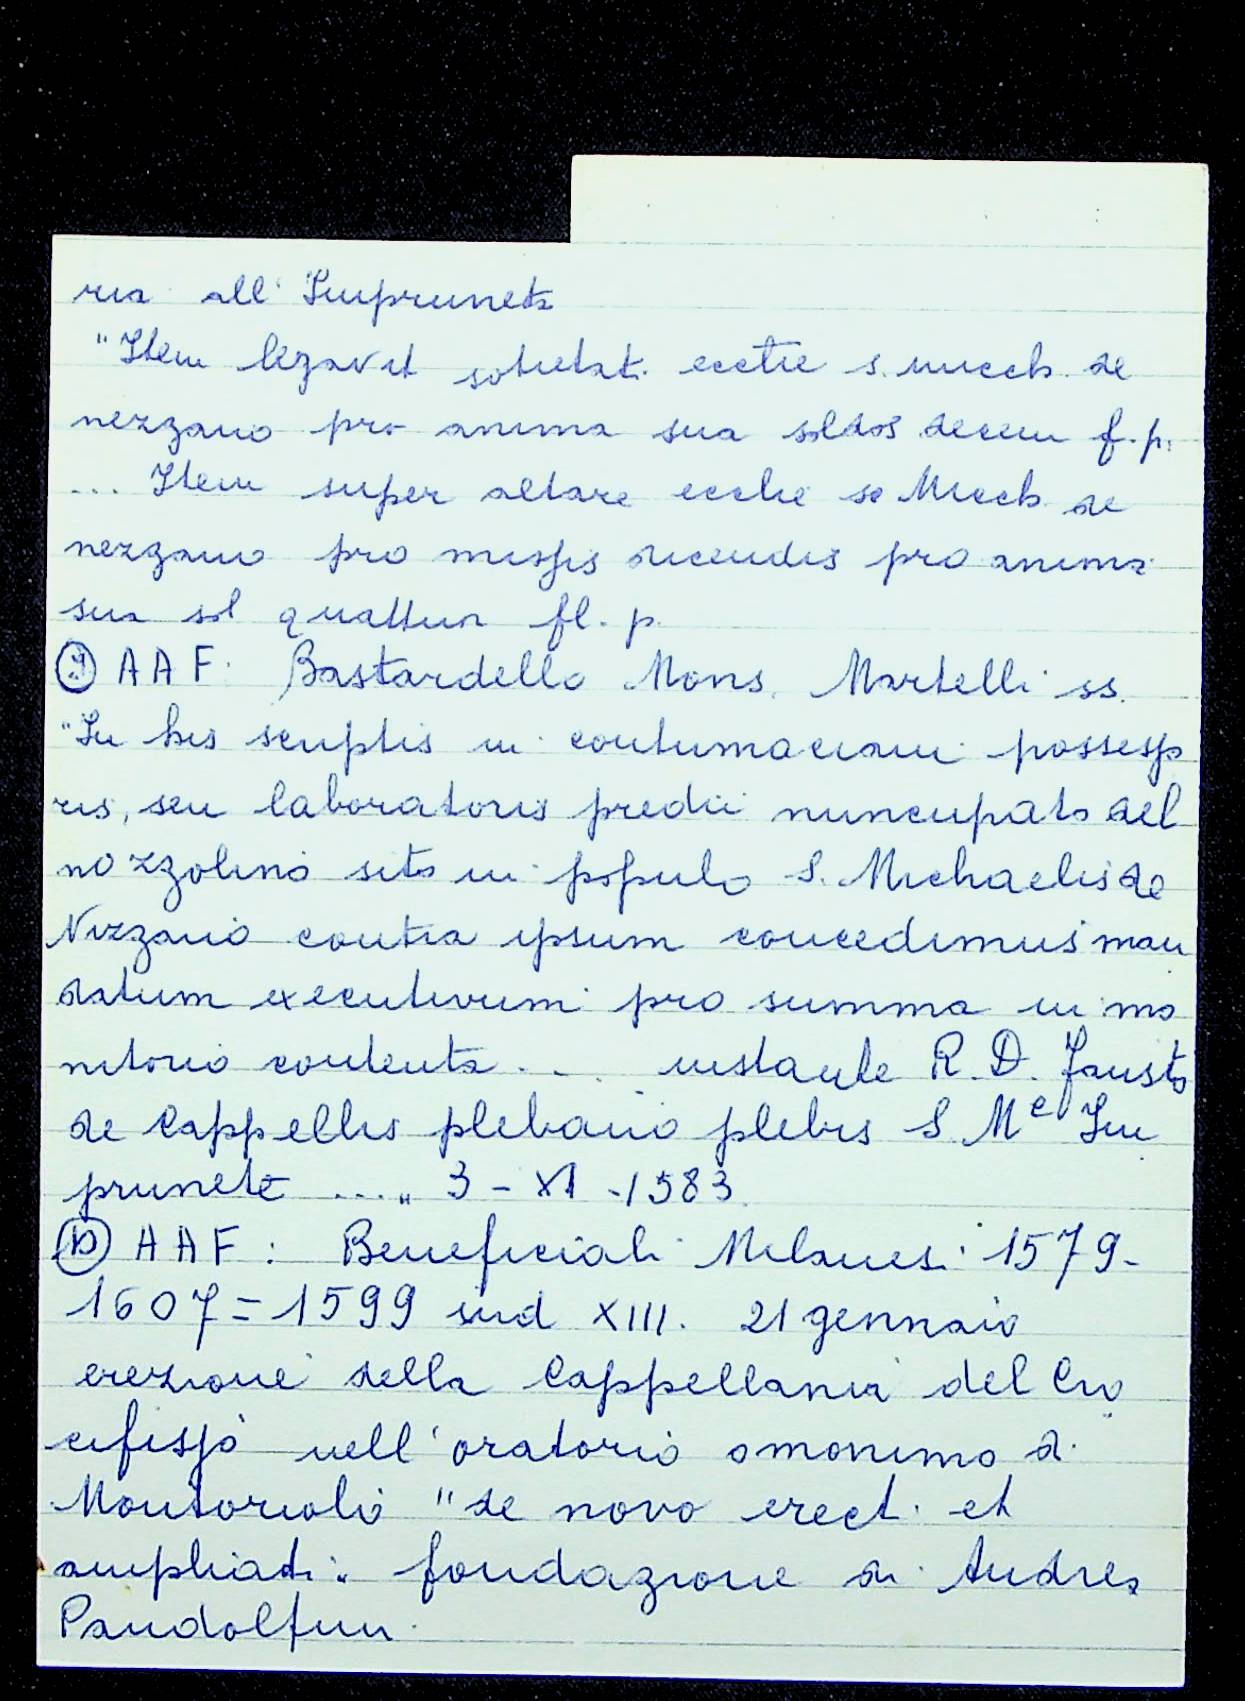 ria all'Impruneta
"Item legavit sotietati ecctie s. micch. de
nezzano pro anima sua soldos decem f. p.
... Item super altare ecclie sc Micch. de
nezzano pro missis dicendis pro anima
sua sol quattuor fl. p.
9 AAF. Bastardello Mons. Martelli ss.
"In his scriptis in contumaciam possesso
ris, seu laboratoris predii nuncupato del
nozzolino sito in populo S. Michaelis de
Nizzano contra ipsum concedimus man
datum executivum pro summa in mo
nitorio contenta .... instante R. D. Fausto
de Cappellis plebano plebis S Me Im
prunete ...." 3 - XI - 1583
10 AAF: Beneficiali Milanesi 1579-
1607 = 1599 ind XIII. 21 gennaio
erezione della Cappellania del Cro
cifisso nell'oratorio omonimo di
Montorioli "de novo erecti et
ampliati" fondazione di Andrea
Pandolfini